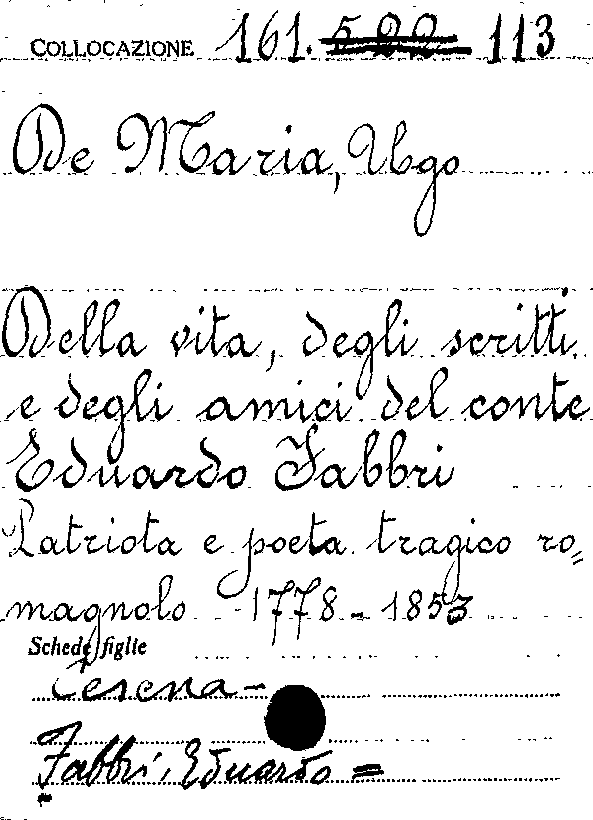 COLLOCAZIONE 161. 522 113
De Maria, Ugo
Della vita, degli scritti
e degli amici del conte
Eduardo Fabbri
Patriota e poeta tragico ro=
magnolo 1778 - 1853
Schede figlie
Cesena -
Fabbri, Eduardo =